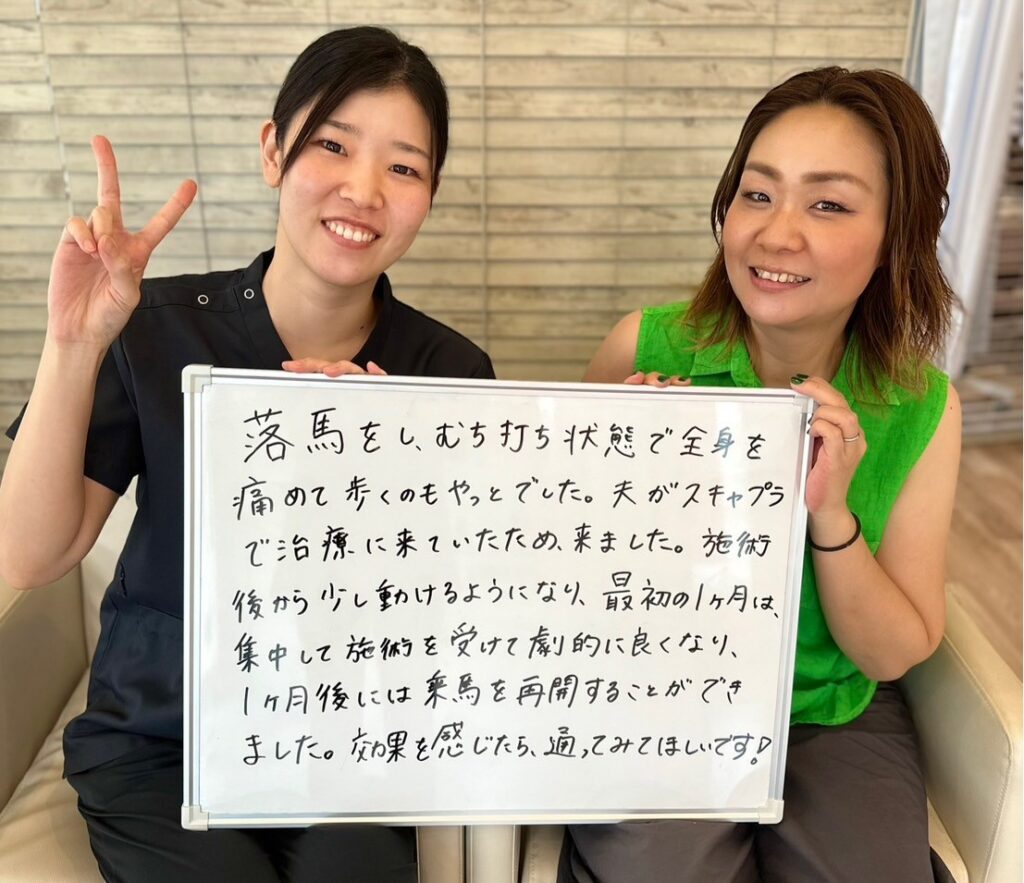 落馬をし、むち打ち状態で全身を
痛めて歩くのもやっとでした。夫がスキャプラ
で治療に来ていたため、来ました。施術
後から少し動けるようになり、最初の1ヶ月は、
集中して施術を受けて劇的に良くなり、
1ヶ月後には乗馬を再開することができ
ました。効果を感じたら、通ってみてほしいです!